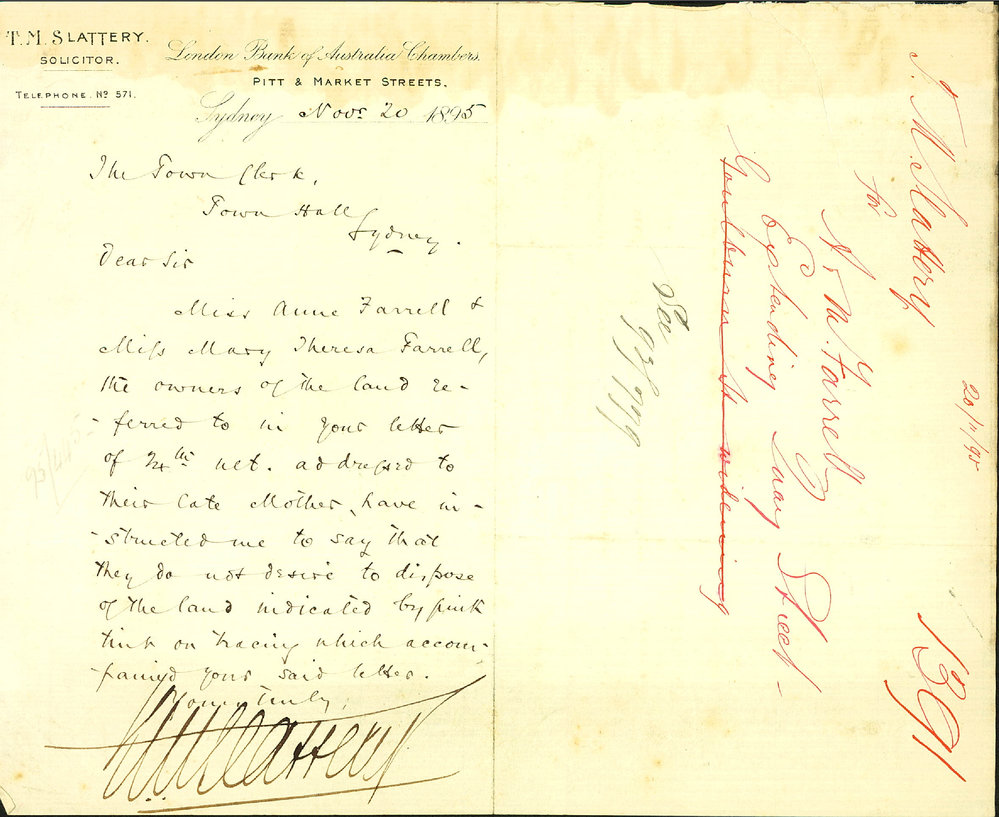 T. M. SLATTERY.
SOLICITOR.
TELEPHONE. Nº 571.
London Bank of Australia Chambers.
PITT & MARKET STREETS.
Sydney Novr 20 1895
The Town Clerk,
Town Hall
Sydney.
Dear Sir
Miss Anne Farrell &
Miss Mary Theresa Farrell,
the owners of the land re-
-ferred to in your letter
of 24th ult. addressed to
their late Mother, have in-
-structed me to say that
they do not desire to dispose
of the land indicated by pink
tint on tracing which accom-
-panied your said letter.
Yours truly,
T M Slattery
T. M. Slattery
for
A & M. Farrell
Extending Quay Street -
Goulburn St widening
20/11/95
See